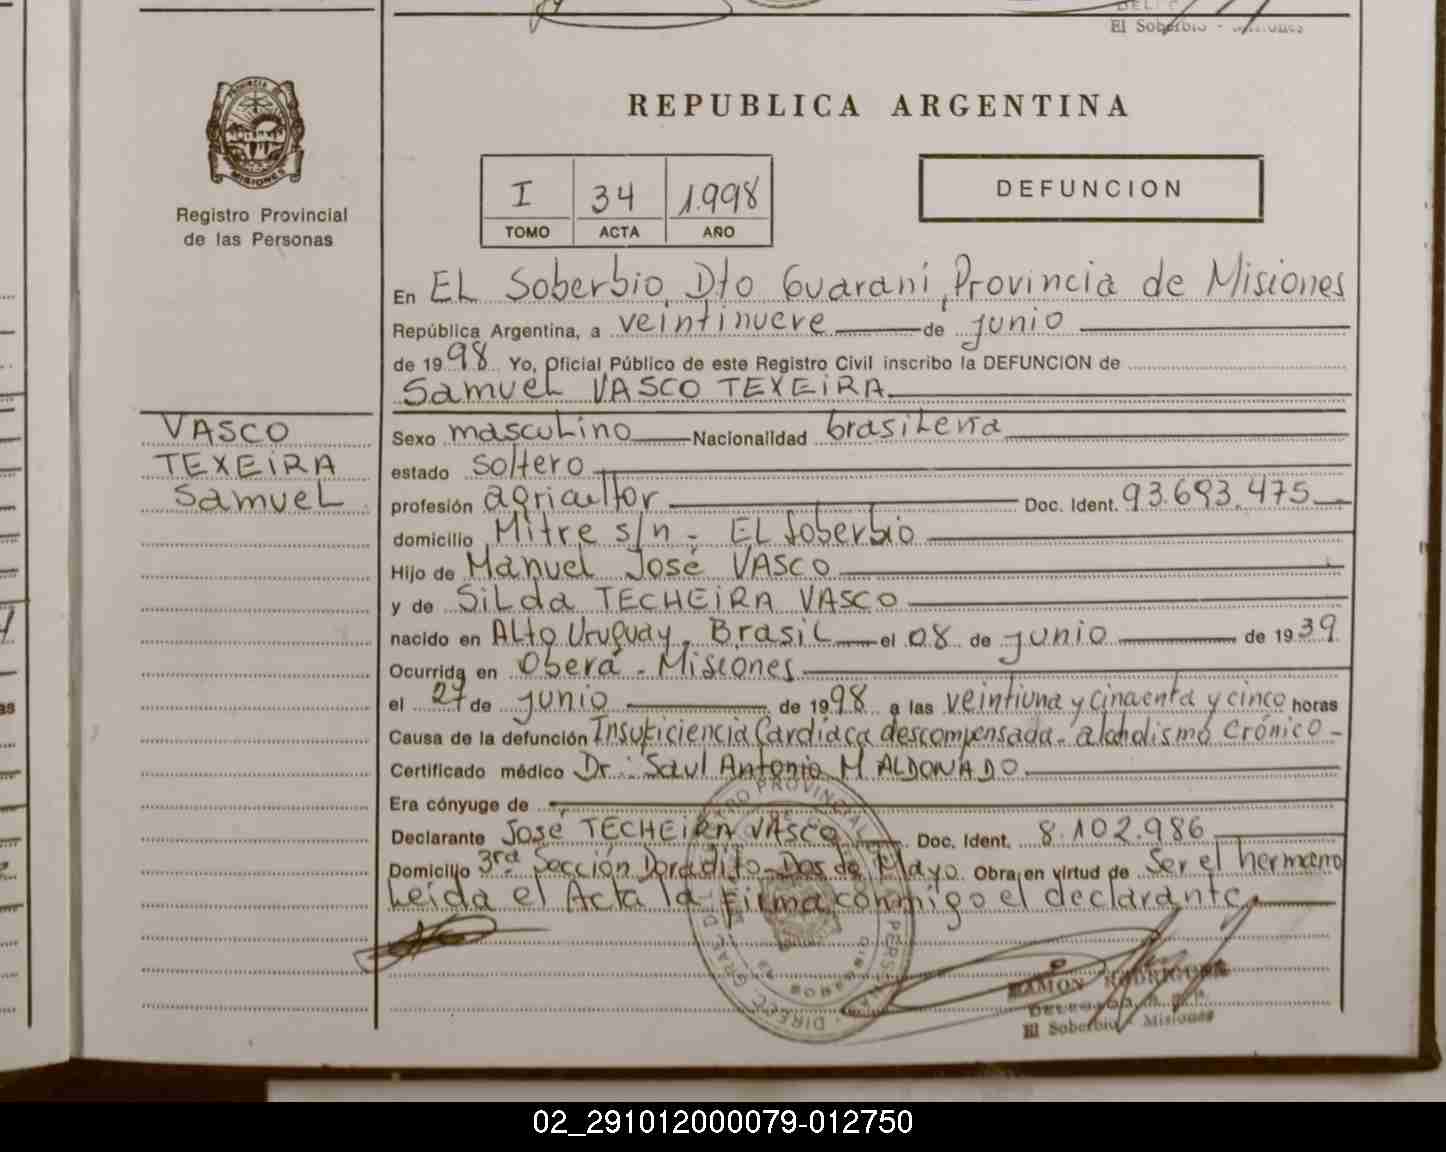 El Soberbio - Misiones
PROVINCIA DE
MISIONES
Registro Provincial
de las Personas
REPUBLICA ARGENTINA
I 34 1.998
TOMO ACTA AÑO
DEFUNCION
En EL Soberbio, Dto Guaraní, Provincia de Misiones
República Argentina, a veintinueve de junio
de 1998 Yo, Oficial Público de este Registro Civil inscribo la DEFUNCION de
Samuel VASCO TEXEIRA
VASCO
TEXEIRA
Samuel
Sexo masculino Nacionalidad brasilera
estado soltero
profesión agricultor Doc. Ident. 93.693.475
domicilio Mitre s/n - EL Soberbio
Hijo de Manuel José VASCO
y de Silda TECHEIRA VASCO
nacido en Alto Uruguay, Brasil el 08 de junio de 1939
Ocurrida en Oberá - Misiones
el 27 de junio de 1998 a las veintiuna y cincuenta y cinco horas
Causa de la defunción Insuficiencia Cardíaca descompensada - alcholismo Crónico -
Certificado médico Dr: Saul Antonio MALDONADO
Era cónyuge de
Declarante José TECHEIRA VASCO Doc. Ident. 8.102.986
Domicilio 3ra Sección Doradito - Dos de Mayo Obra en virtud de Ser el hermano
Leída el Acta la firma conmigo el declarante.
RAMON RODRIGUEZ
El Soberbio - Misiones
02_291012000079-012750